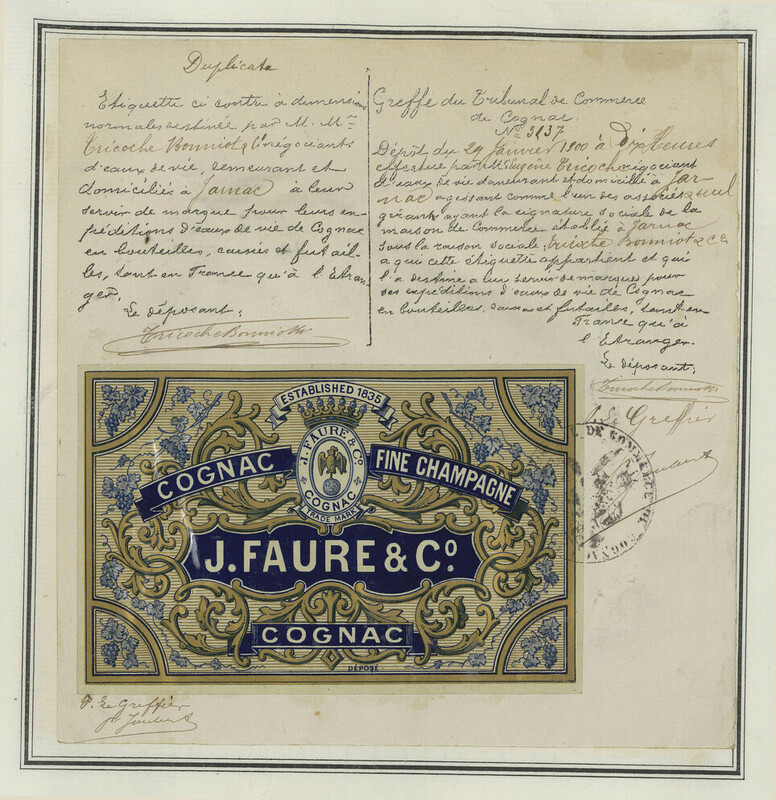 Duplicata
Etiquette ci contre à dimensions
normales destinée par M. Mrs
Tricoche Bonniot & Cie négociants
d'eaux de vie, demeurant et
domiciliés à Jarnac à leur
servir de marque pour leurs ex-
péditions d'eaux de vie de Cognac
en bouteilles, caisses et futail-
les, tant en France qu'à l'Etran-
ger.
Le déposant:
Tricoche Bonniot &
Greffe du Tribunal de Commerce
de Cognac.
No 3137
Dépôt du 29 Janvier 1900 à Dix Heures
effectué par M. Eugène Tricoche négociant
d'eaux de vie demeurant et domicilié à Jar-
nac agissant comme l'un des associés seul
gérant ayant la signature sociale de la
maison de Commerce établie à Jarnac
sous la raison sociale, Tricoche Bonniot & Cie
a qui cette étiquette appartient et qui
l'a destine a leur servir de marque pour
ses expéditions d'eaux de vie de Cognac
en bouteilles, caisses et futailles, tant en
France qu'à
l'Etranger.
Le déposant:
Tricoche Bonniot &
Le Greffier
ESTABLISHED 1835
J. FAURE & Co
COGNAC
TRADE MARK
COGNAC
FINE CHAMPAGNE
J. FAURE & Co
COGNAC
DÉPOSÉ
DE COMMERCE DE
COGNAC
P. Le Greffier
Joubert